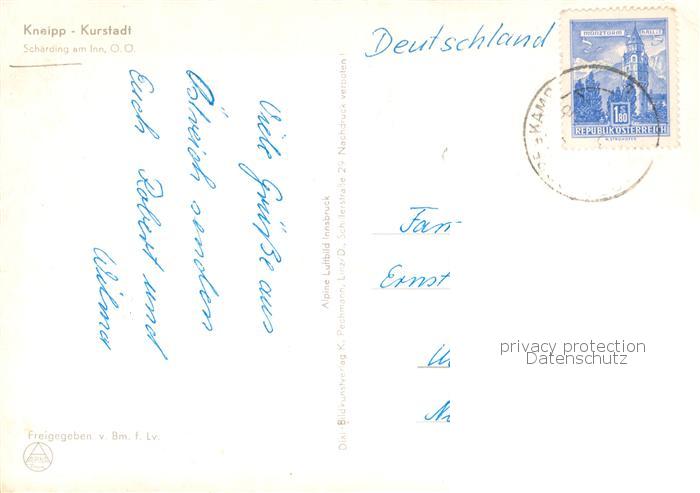 Kneipp - Kurstadt
Schärding am Inn, O.Ö.
Viele Grüße aus
Östreich senden
Euch Robert und
Wilma
Freigegeben v. Bm. f. Lv.
Alpine Luftbild Innsbruck
Dixi-Bildkunstverlag K. Pechmann, Linz/D., Schillerstraße 29. Nachdruck verboten!
Deutschland
MÜNZTURM HALL I.T.
S 1.80
REPUBLIK ÖSTERREICH
KAMP
Fam
Ernst
privacy protection
Datenschutz